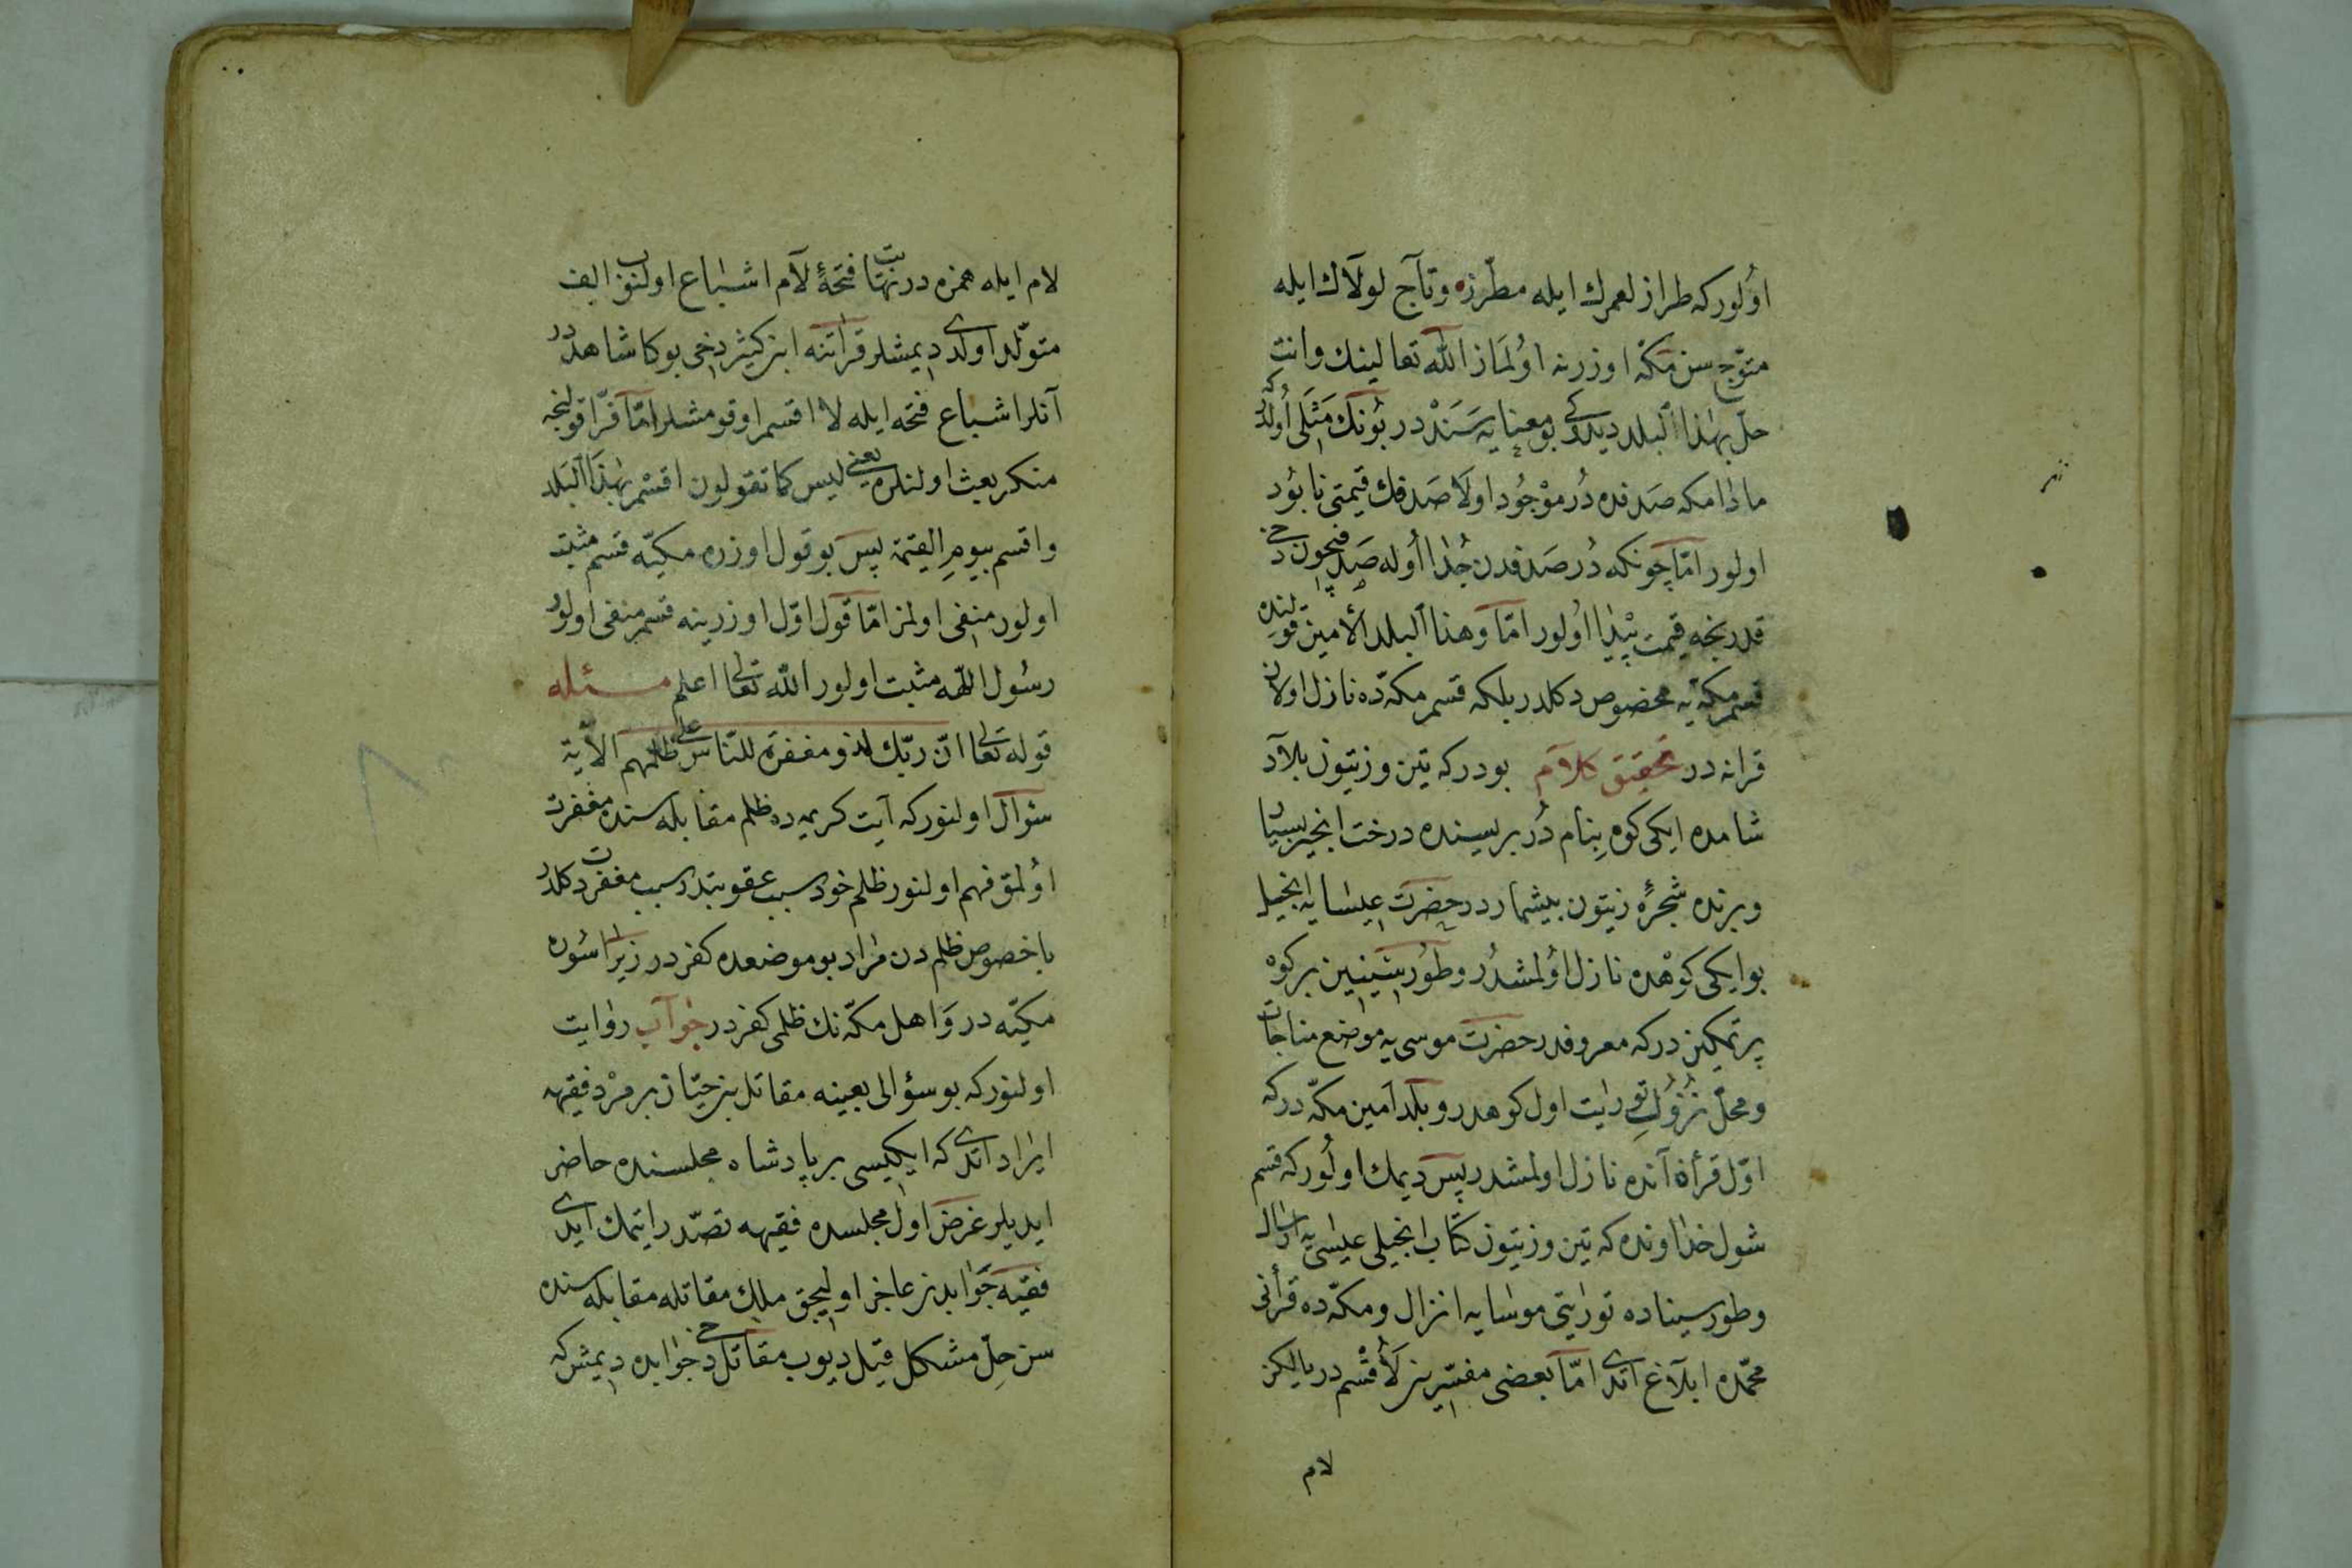 اولور که طراز لعمرك ایله مطرّزه و تاج لولاك ایله
متوّج سن مکّه اوزرنه اولماز الله تعالینك وانت
حلّ بهٰذا البلد دیدکی بو معنایه سَنَدْ در بونك مَثَلی اولدر که
مادامکه صَدفده دُر موْجُود اولا صَدفك قیمتی نابود
اولور امّا چونکه دُر صَدفدن جُدا اوله صَدفچون دخی
قدر نجه قیمت پیدا اولور امّا وهذا البلد الأمین قولنده
قسم مکّه یه مخصوص دکلدر بلکه قسم مکّه ده نازل اولان
قرانه در تحقیق کلام بودر که تین و زیتون بلاد
شامده ایکی کوه بنام دُر بریسنده درخت انجیر بسیار
و برنده شجرهٔ زیتون بیشمار در حضرت عیسایه انجیل
بو ایکی کوهْده نازل اولمشدُر و طُور سینین بر کوه
پر تمکین در که معروفدر حضرت موسی یه موضع مناجات
و محلّ نزُولِ تورایت اول کوهدر و بلد امین مکّه در که
اوّل قرأة آنده نازل اولمشدر پس دیمك اولور که قسم
شول خداونده که تین و زیتون کتاب انجیلی عیسی یه ارسال
و طور سیناده تورایتی موسایه انزال و مکّه ده قرأنی
محمّده ابلاغ اتدی امّا بعضی مفسّرین لَأُقْسم در یالکز
لام
لام ایله همزه در نهایت فتحهٔ لام اشباع اولنوب الف
متولّد اولدی دیمشلر قرأتنه ابن کیثر دخی بوکا شاهددر
آنلر اشباع فتحه ایله لا اقسم اوقومشلر امّا فرّا قولنجه
منکر بعث اولنلره یعنی لیس کما تقولون اقسْم بهٰذا البلد
واقسم بیومِ القیمة پس بو قول اوزره مکیّه قسم مثبت
اولور منفی اولمز امّا قول اوّل اوزرینه قسم منفی اولور
رسُول الله مثبت اولور الله تعالی اعلم مسئله
قوله تعالی انّ ربّك لذو مغفرة للنّاس علی ظلمهم الآیة
سؤال اولنور که آیت کریمه ده ظلم مقابله سنده مغفرت
اولمق فهم اولنور ظلم خود سبب عقوبتدر سبب مغفرت دکلدر
باخصوص ظلم دن مراد بو موضعده کفر در زیرا سُوره
مکیّه در وَاهل مکّه نك ظلمی کفر در جواب روایت
اولنور که بو سؤالی بعینه مقاتل بن حیّان بر مرْد فقیهه
ایراد اتدی که ایکیسی بر پادشاه مجلسنده حاضر
ایدیلر غرض اول مجلسده فقیهه تصدّر ایتمك ایدی
فقیه جَوابدن عاجز اولیجق ملك مقاتله مقابله سنده
سن حلّ مشکل قیل دیوب مقاتل دخی جوابده دیمش که